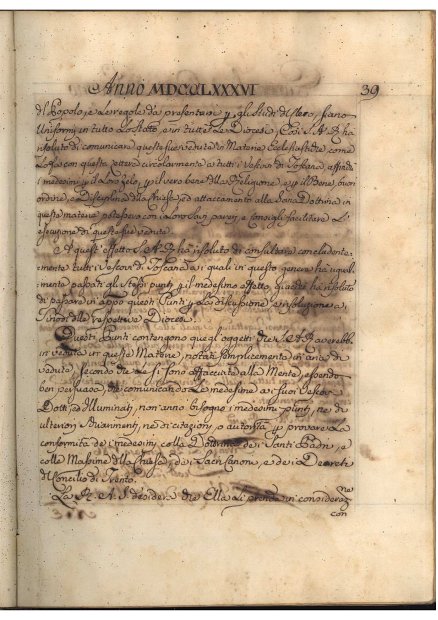 Anno MDCCLXXXVI 39
del Popolo, e le regole da presentarsi p gli Studi del Clero, siano
Uniformi in tutto lo Stato, e in tutte le Diocesi, Così S. A. R. ha
risoluto di comunicare queste sue vedute in Materie Ecclesiastiche come
Lo fa con questa lettera circolarmente a tutti i Vescovi di Toscana, affinchè
i medesimi p il Loro zelo, p il vero bene della Religione, e p il Bene, buon
ordine, e Disciplina della Chiesa, ed attaccamento alla Sana Dottrina in
queste materie potessero con i Loro Lumi, pareri, e Consigli facilitare L'
esecuzione di queste sue vedute.
A quest'effetto S. A. R. ha risoluto di consultare concludente-
mente tutti i Vescovi di Toscana a i quali in questo genere ha ugual-
mente passati gli stessi punti p il medesimo effetto, giacchè ha risoluto
di passare in appo questi Punti p La discussione, e risoluzione a i
Sinodi delle respettive Diocesi.
Questi Punti contengono quegl'oggetti che S. A. R. averebbe
in veduta in queste Materie, notate semplicemente in aria di
vedute, secondo che se li sono affacciate alla Mente, essendo
ben persuaso, che comunicando Le medesime a i suoi Vescovi
Dotti, ed Illuminati, non anno bisogno i medesimi punti, nè di
ulteriori schiarimenti, nè di citazioni, o autorità p provare La
conformità de i medesimi colla Dottrina de i Santi Padri, e
colle Massime della Chiesa, de i Sacri Canoni, e de i Decreti
del Concilio di Trento.
La R. A. S. desidera che Ella li prenda in considerazne
con